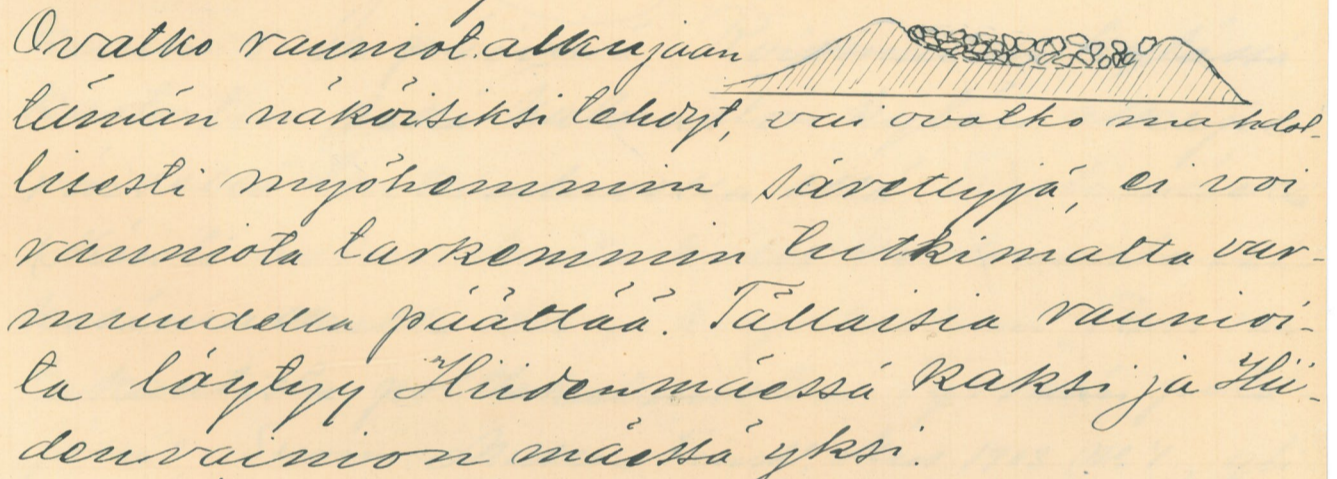 Ovatko rauniot alkujaan
tämän näköisiksi tehdyt, vai ovatko mahdol-
lisesti myöhemmin särettyjä, ei voi
rauniota tarkemmin tutkimatta var-
muudella päättää. Tällaisia raunioi-
ta löytyy Hiidenmäessä kaksi ja Hii-
denvainion mäessä yksi.